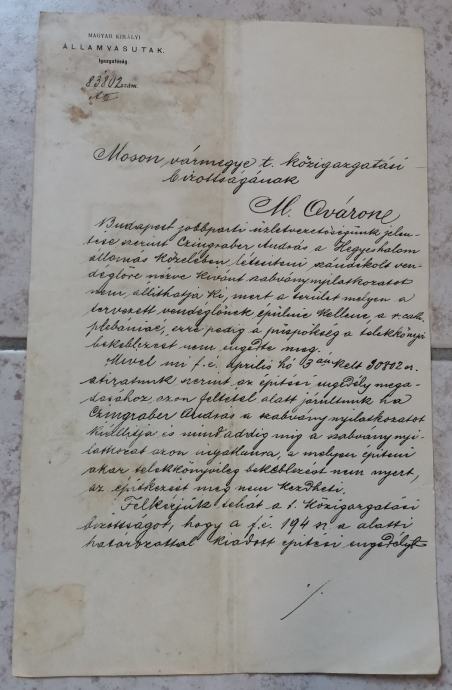 MAGYAR KIRÁLYI
ÁLLAMVASUTAK.
Igazgatóság.
83802 szám.
Moson vármegye t. közigazgatási
bizottságának
M. Óvárone
Budapest jobbparti üzletvezetőségünk jelen-
tése szerint Czingraber András a Hegyeshalom
állomás közelében létesíteni szándékolt ven-
déglőre nézve kivánt szabványnyilatkozatot
nem állithatja ki, mert a terület melyen a
tervezett vendéglőnek épülnie kellene, a r. cath.
plébániáé, erre pedig a püspökség a telekkönyvi
bekeblezést nem engedte meg.
Mivel mi f. é. április hó 13 án kelt 30802 sz.
átiratunk szerint az épitési engedély mega-
dásához azon feltétel alatt járultunk ha
Czingraber András a szabványnyilatkozatot
kiállitja és mindaddig mig a szabványnyi-
latkozat azon ingatlanra, a melyen épiteni
akar telekkönyvileg bekeblezést nem nyert,
az épitkezést meg nem kezdheti.
Felkérjük tehát a t. közigazgatási
bizottságot, hogy a f. é. 194 sz. a. alatti
határozattal kiadott épitési engedélyt
./.